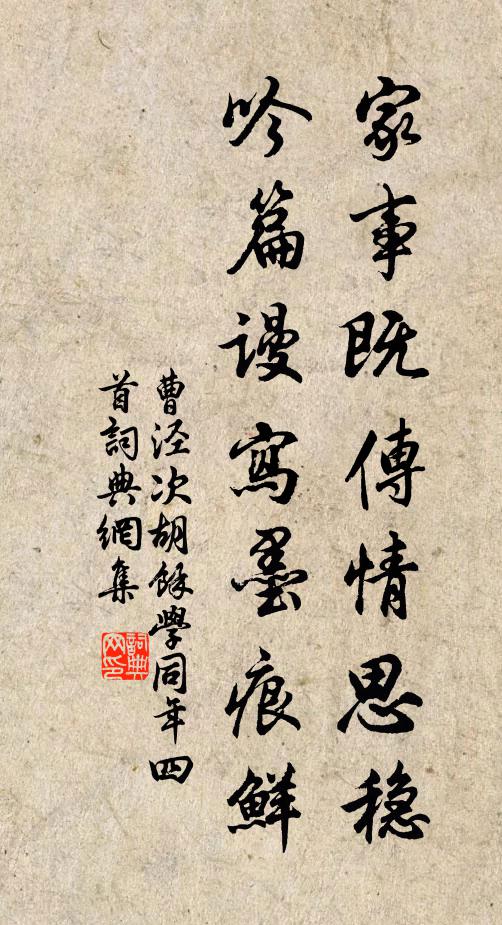 家事既傳情思穏
吟篇謾寫墨痕鮮
曹涇次胡餘學同年四
首詞典網集
詞典网印